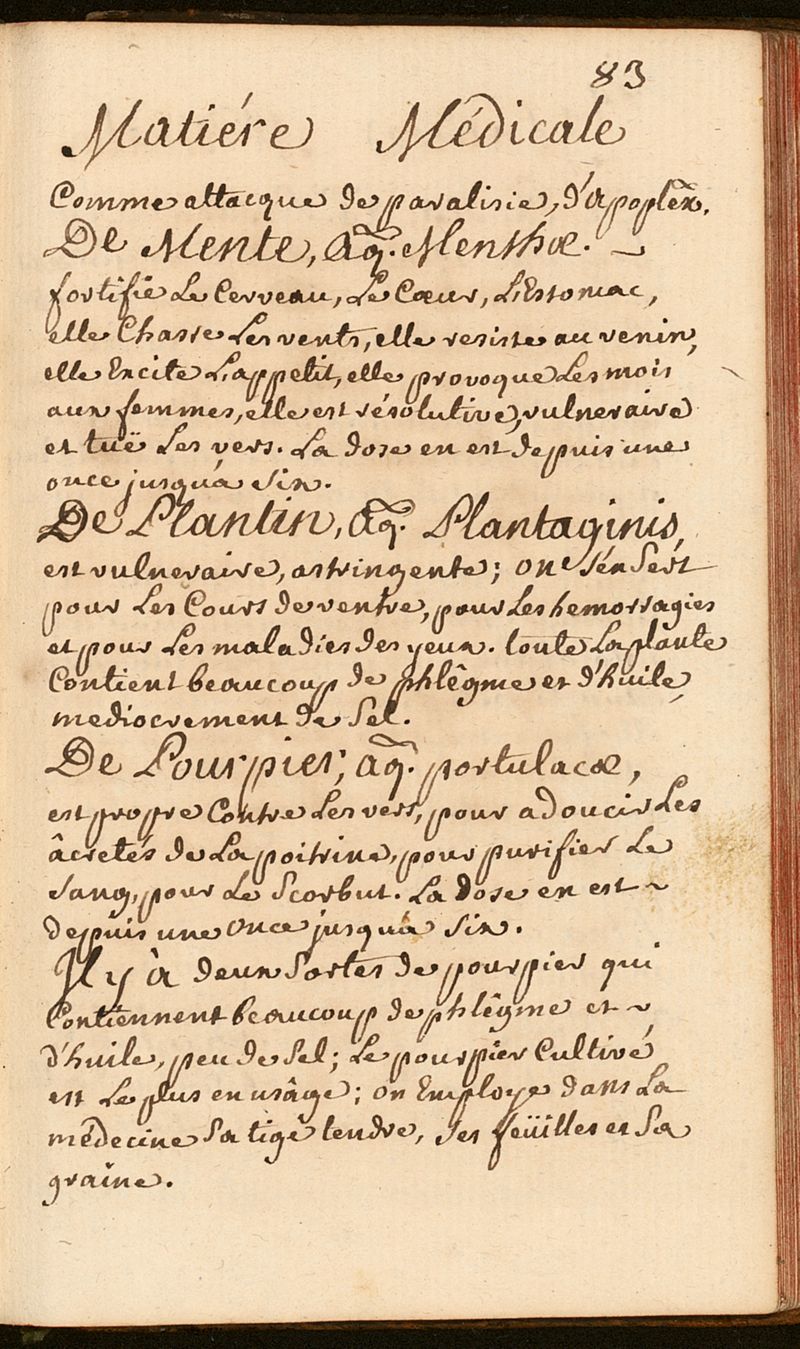 83
Matiére Médicale
Comme attacque de paralisie, d'apoplex.
De Mente, Aq̃. Menthæ. ~
fortifie Le Cerveau, Le Cœur, L'Estomac,
elle Chasse Les vents, elle resiste au venin,
elle Excite L'appetit, elle provoque Les mois
aux femmes, elle est résolutive, vulneraire
et tuë Les vers. La dose en est depuis une
once jusqu'à six.
De Plantin, Aq̃. Plantaginis,
est vulneraire, astringente; on s'én Sért
pour Les Cours de ventre, pour Les hemorragies
et pour Les maladies des yeux. toute La plante
Contient beaucoup de phlêgme et d'huile,
mediocrement de Sel.
De Pourpier, Aq̃. portulacæ,
est propre Contre Les vers, pour adoucir Les
âcretés de La poitrine, pour purifier Le
Sang, pour Le Scorbut. La dose en est ~
depuis une once jusqu'à six.
Il y à deux Sortes de pourpier qui
Contiennent beaucoup de phlêgme et ~
d'huile, peu de Sel; Le pourpier Cultivé
est Le plus en usâge; on Employe dans La
médecine Sa tige tendre, ses feüilles et Sa
graine.